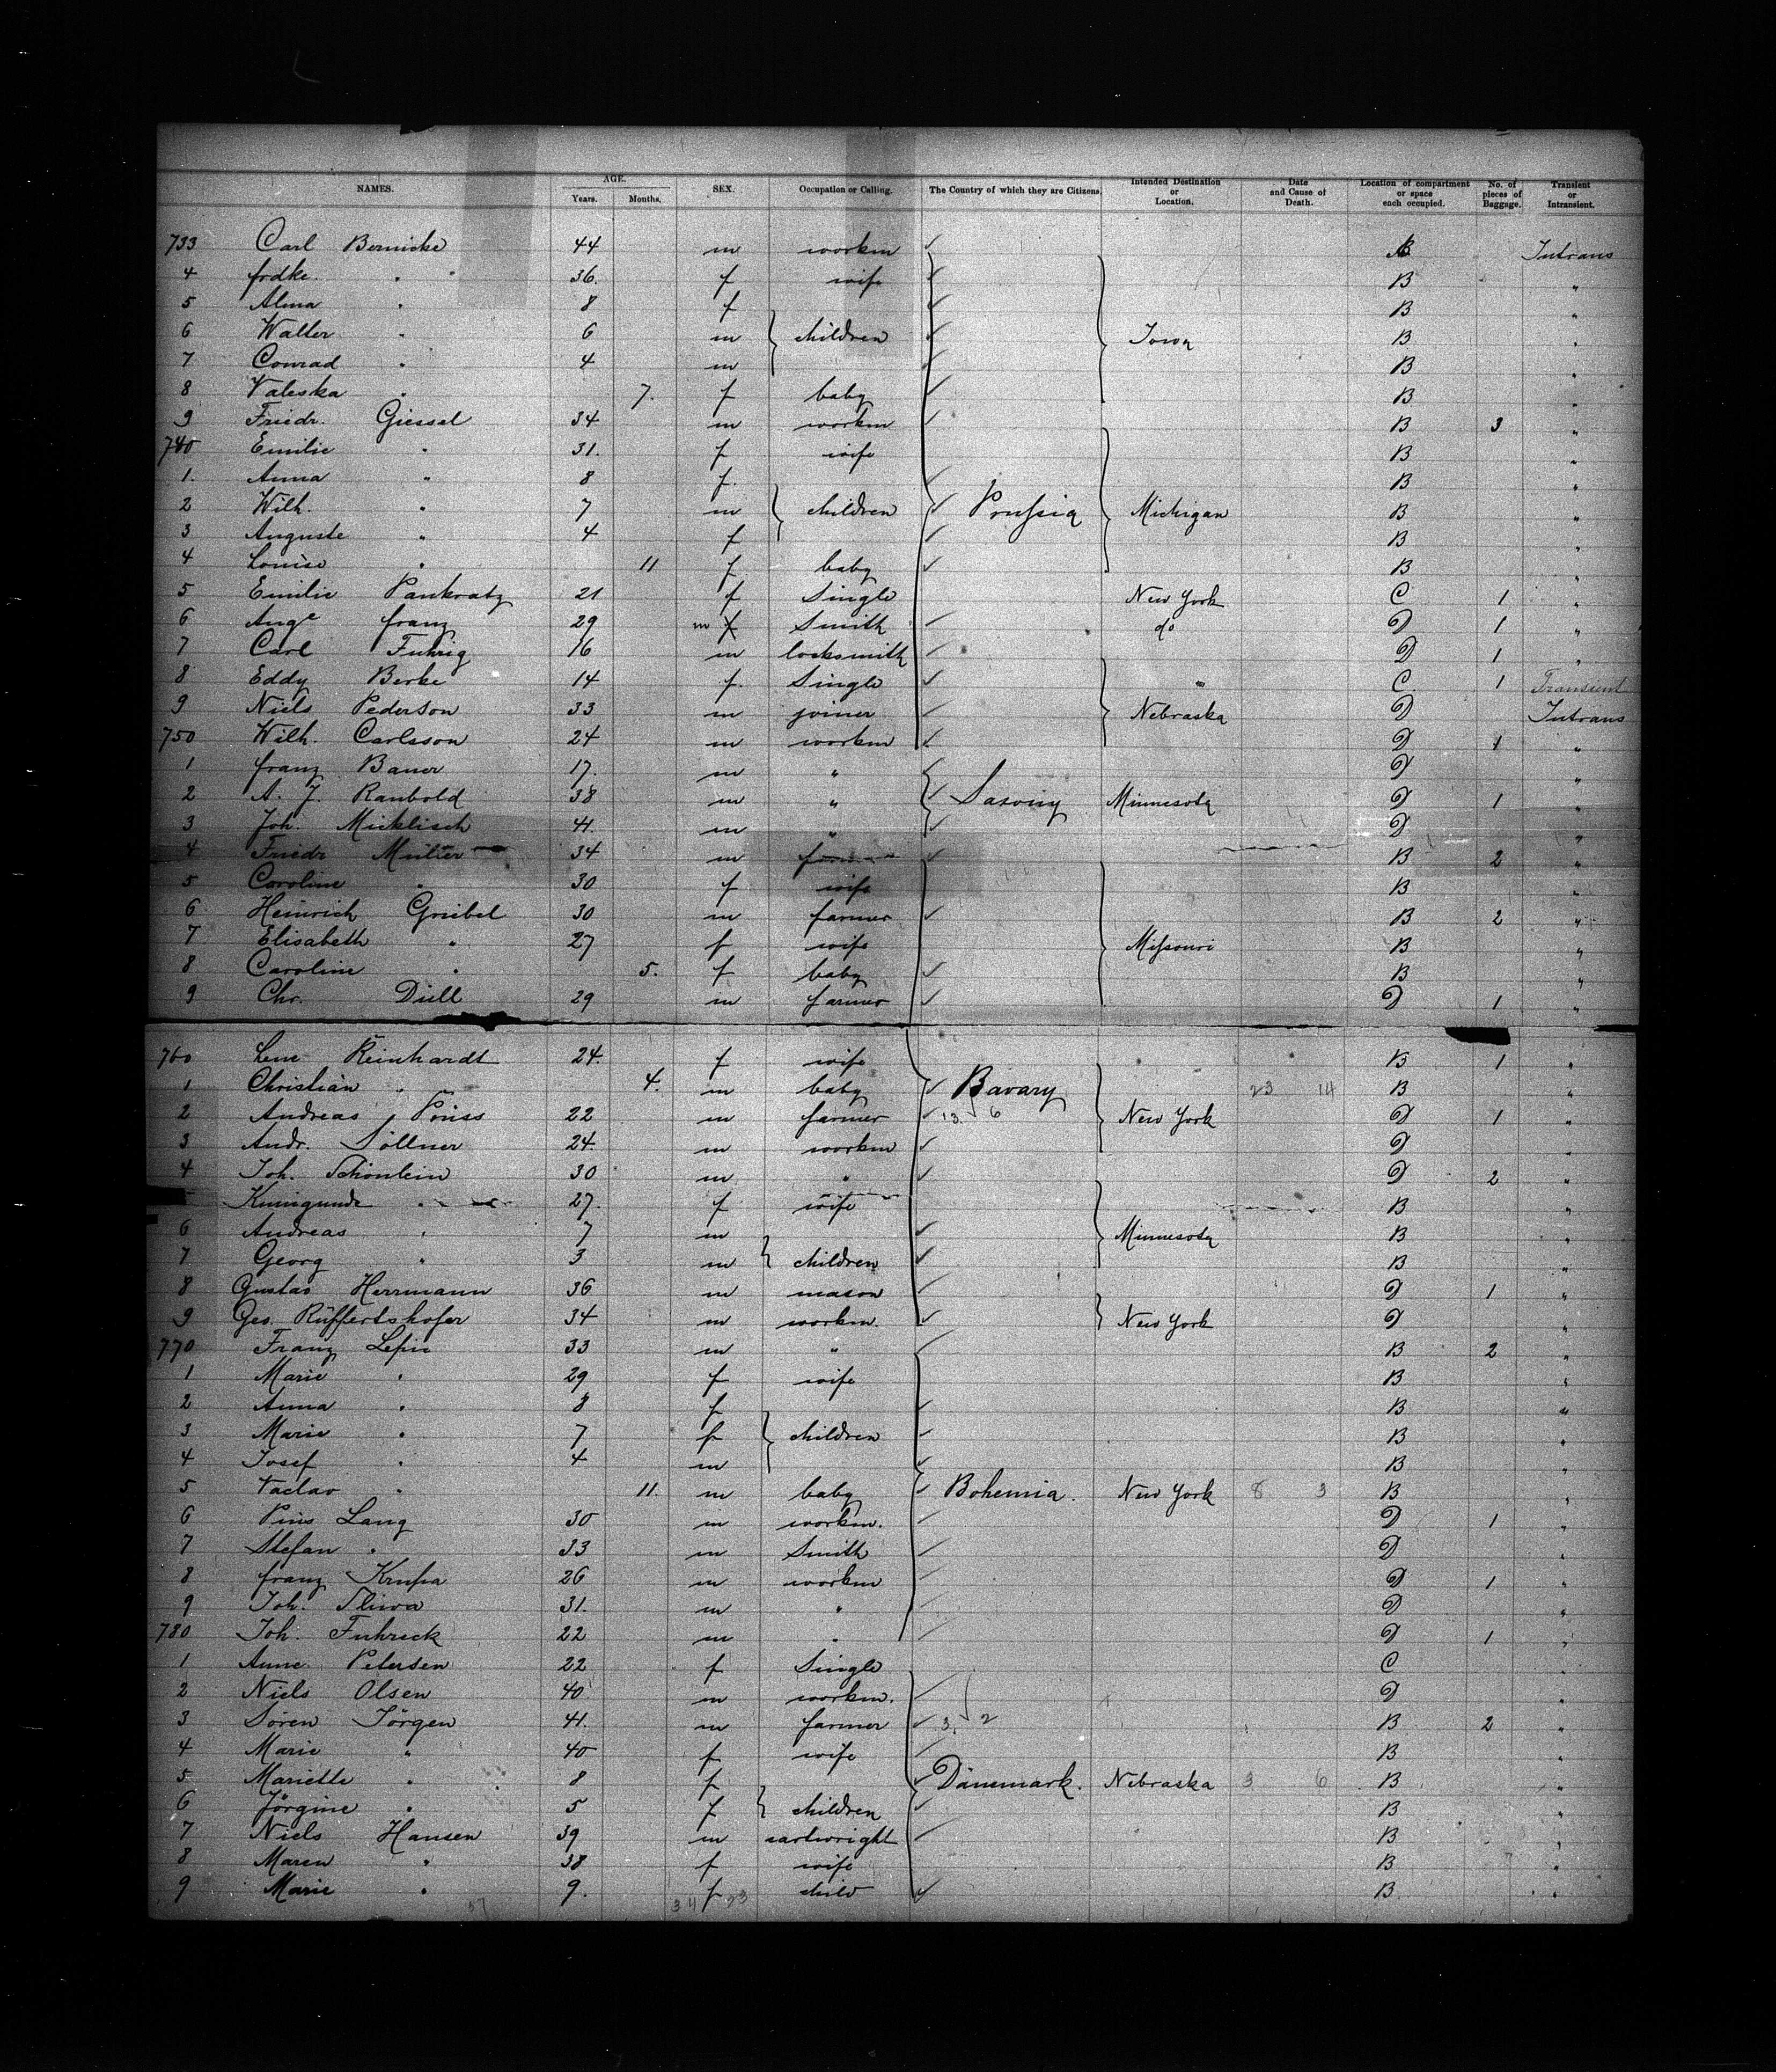 NAMES. AGE. Years. Months. SEX. Occupation or Calling. The Country of which they are Citizens. Intended Destination or Location. Date and Cause of Death. Location of compartment or space each occupied. No. of pieces of Baggage. Transient or Intransient.
733 Carl Bernicke 44 m workm Intrans
4 frdke. " 36. f wife B "
5 Alma " 8 f B "
6 Walter " 6 m children Iowa B "
7 Conrad " 4 m B "
8 Valeska " 7. f baby B "
9 Friedr. Giessel 34 m workm B 3 "
740 Emilie " 31. f wife B "
1. Anna " 8 f. B "
2 Wilh. " 7 m children Prussia Michigan B "
3 Auguste " 4 f B "
4 Louise " 11 f baby B "
5 Emilie Pankratz 21 f Single New York C 1 "
6 Auge franz 29 m f Smith do D 1 "
7 Carl Fuhrig 16 m locksmith D 1 "
8 Eddy Berke 14 f. Single " C 1 Transient
9 Niels Pederson 33 m joiner Nebraska D Intrans
750 Wilh. Carlsson 24 m workm D 1 "
1 franz Bauer 17. m " D "
2 A. J. Ranbold 38 m " Saxony Minnesota D 1 "
3 Joh. Micklisch 41. m " D "
4 Friedr 34 m B 2 "
5 Caroline " 30 f wife B "
6 Heinrich Griebel 30 m farmer B 2 "
7 Elisabeth " 27 f wife Missouri B "
8 Caroline " 5. f baby B "
9 Chr. Diell 29 m farmer D 1 "
760 Lene Reinhardt 24. f wife B 1 "
1 Christian " 4. m baby Bavary 23 14 B "
2 Andreas 22 m farmer 13. 6 New York D 1 "
3 Andr. Söllner 24. m workm D "
4 Joh. Schönlein 30 m " D 2 "
5 Kunigunde " 27. f wife B "
6 Andreas " 7 m Minnesota B "
7 Georg " 3 m children B "
8 Gustav Herrmann 36 m mason D 1 "
9 Geo. Rüffertshofer 34 m workm. New York D "
770 Franz 33 m " B 2 "
1 Marie " 29 f wife B "
2 Anna " 8 f B "
3 Marie " 7 f children B "
4 Josef " 4 m B "
5 Vaclav " 11. m baby Bohemia. New York 8 3 B "
6 Pius Lang 30 m workm. D 1 "
7 Stefan " 33 m Smith D "
8 franz Krupa 26 m workm D 1 "
9 Joh. Sliwa 31. m " D "
780 Joh. Fuhrick 22 m " D 1 "
1 Anne Petersen 22 f Single C "
2 Niels Olsen 40 m workm. D "
3 Sören Jörgen 41. m farmer 3. 2 B 2 "
4 Marie " 40 f wife B "
5 Mariette " 8 f Dänemark. Nebraska 3 6 B "
6 Jörgine " 5 f children B "
7 Niels Hansen 39 m cartwright B "
8 Maren " 38 f wife B "
9 Marie " 9. f child B "
34 23